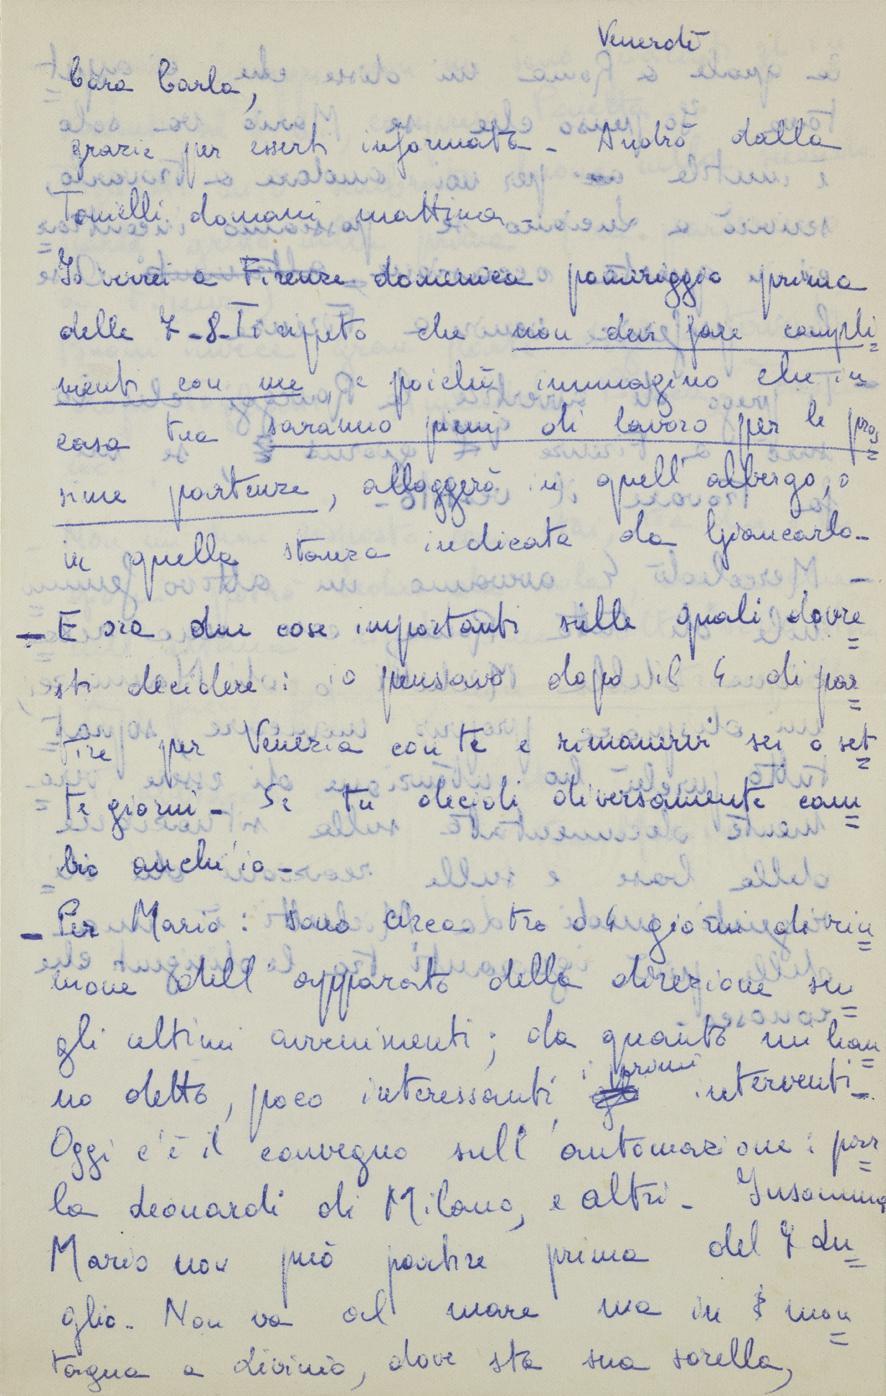 Venerdì
Cara Carla,
grazie per esserti informata - Andrò dalla
Tonelli domani mattina
Io verrei a Firenze domenica pomeriggio prima
delle 7-8. Ti ripeto che non devi fare compli=
menti con me, e poiché immagino che in
casa tua saranno pieni di lavoro per le pros=
sime partenze, alloggerò in quell'albergo, o
in quella stanza indicata da Giancarlo -
- E ora due cose importanti sulle quali dovre=
sti decidere: io pensavo dopo il 4 di par=
tire per Venezia con te e rimanervi sei o set=
te giorni - Se tu decidi diversamente cam=
bio anch'io -
- Per Mario: sono circa tre o 4 giorni di riu=
nione dell'apparato della direzione su=
gli ultimi avvenimenti; da quanto mi han=
no detto, poco interessanti i primi interventi -
Oggi c'è il convegno sull'automazione: par=
la Leonardi di Milano, e altri - Insomma
Mario non può partire prima del 7 Lu=
glio - Non va al mare ma in mon=
tagna a , dove sta sua sorella,